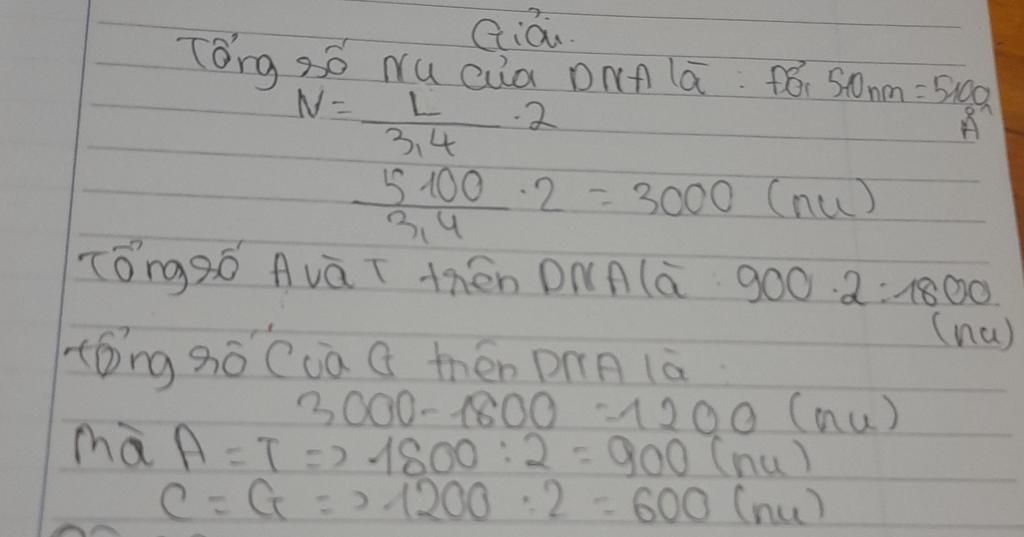 Giải.
Tổng số Nu của DNA là: Đổi 510nm = 5100 Å
N = L / 3,4 . 2
5100 / 3,4 . 2 = 3000 (nu)
Tổng số A và T trên DNA là: 900 . 2 = 1800
(nu)
tổng số C và G trên DNA là:
3000 - 1800 = 1200 (nu)
mà A = T => 1800 : 2 = 900 (nu)
C = G => 1200 : 2 = 600 (nu)